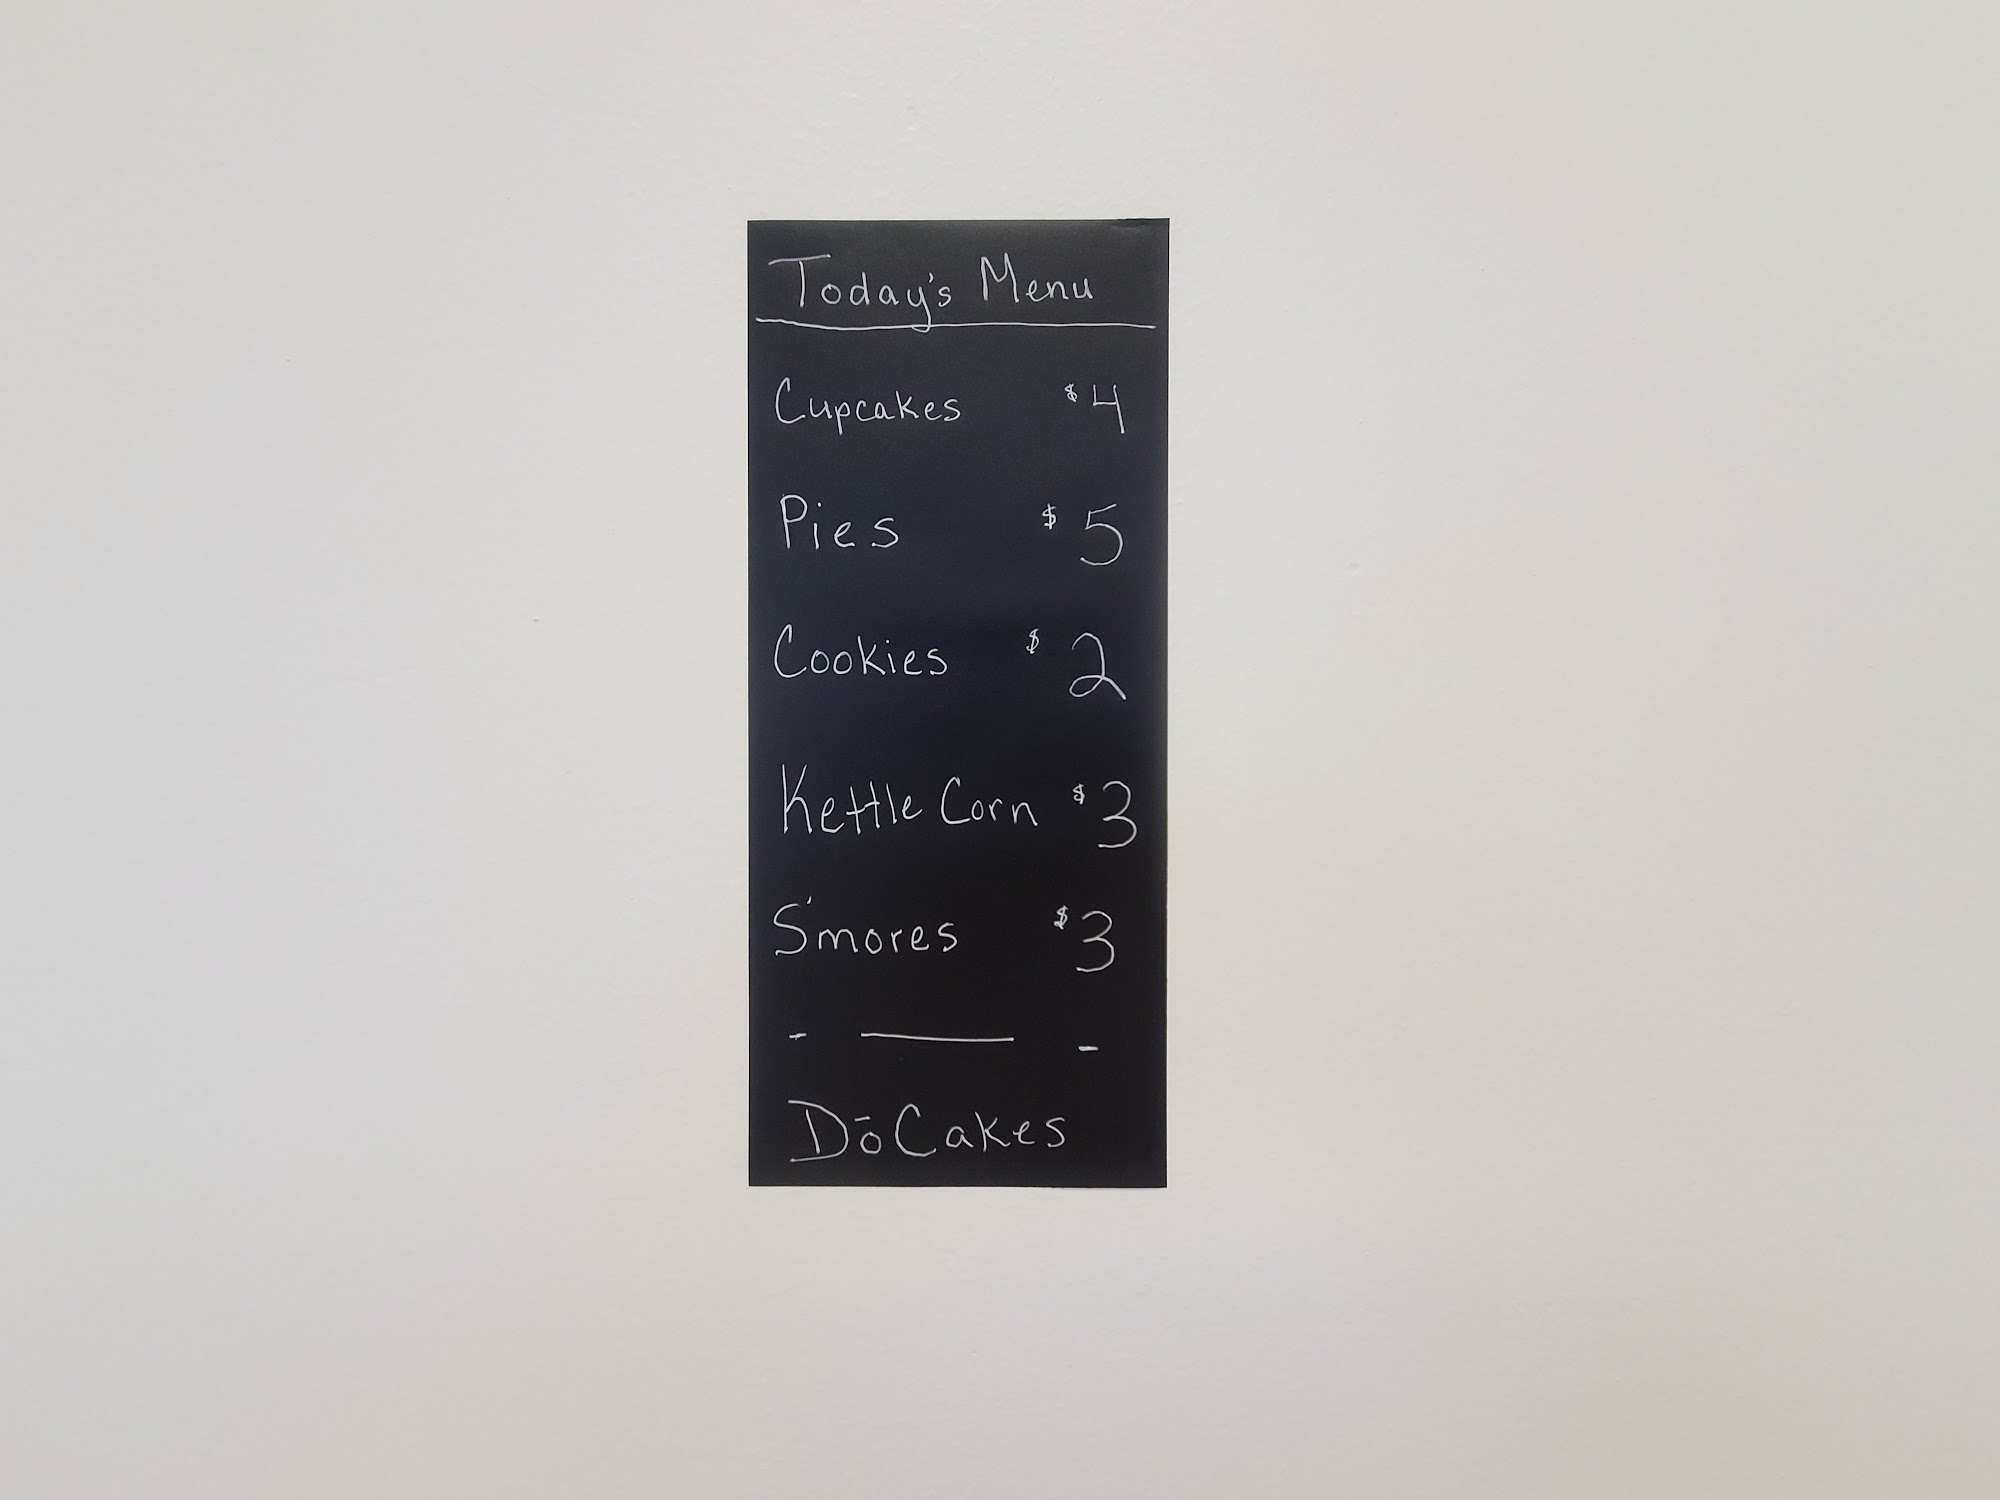 Today's Menu
Cupcakes $4
Pies $5
Cookies $2
Kettle Corn $3
S'mores $3
- — -
DōCakes